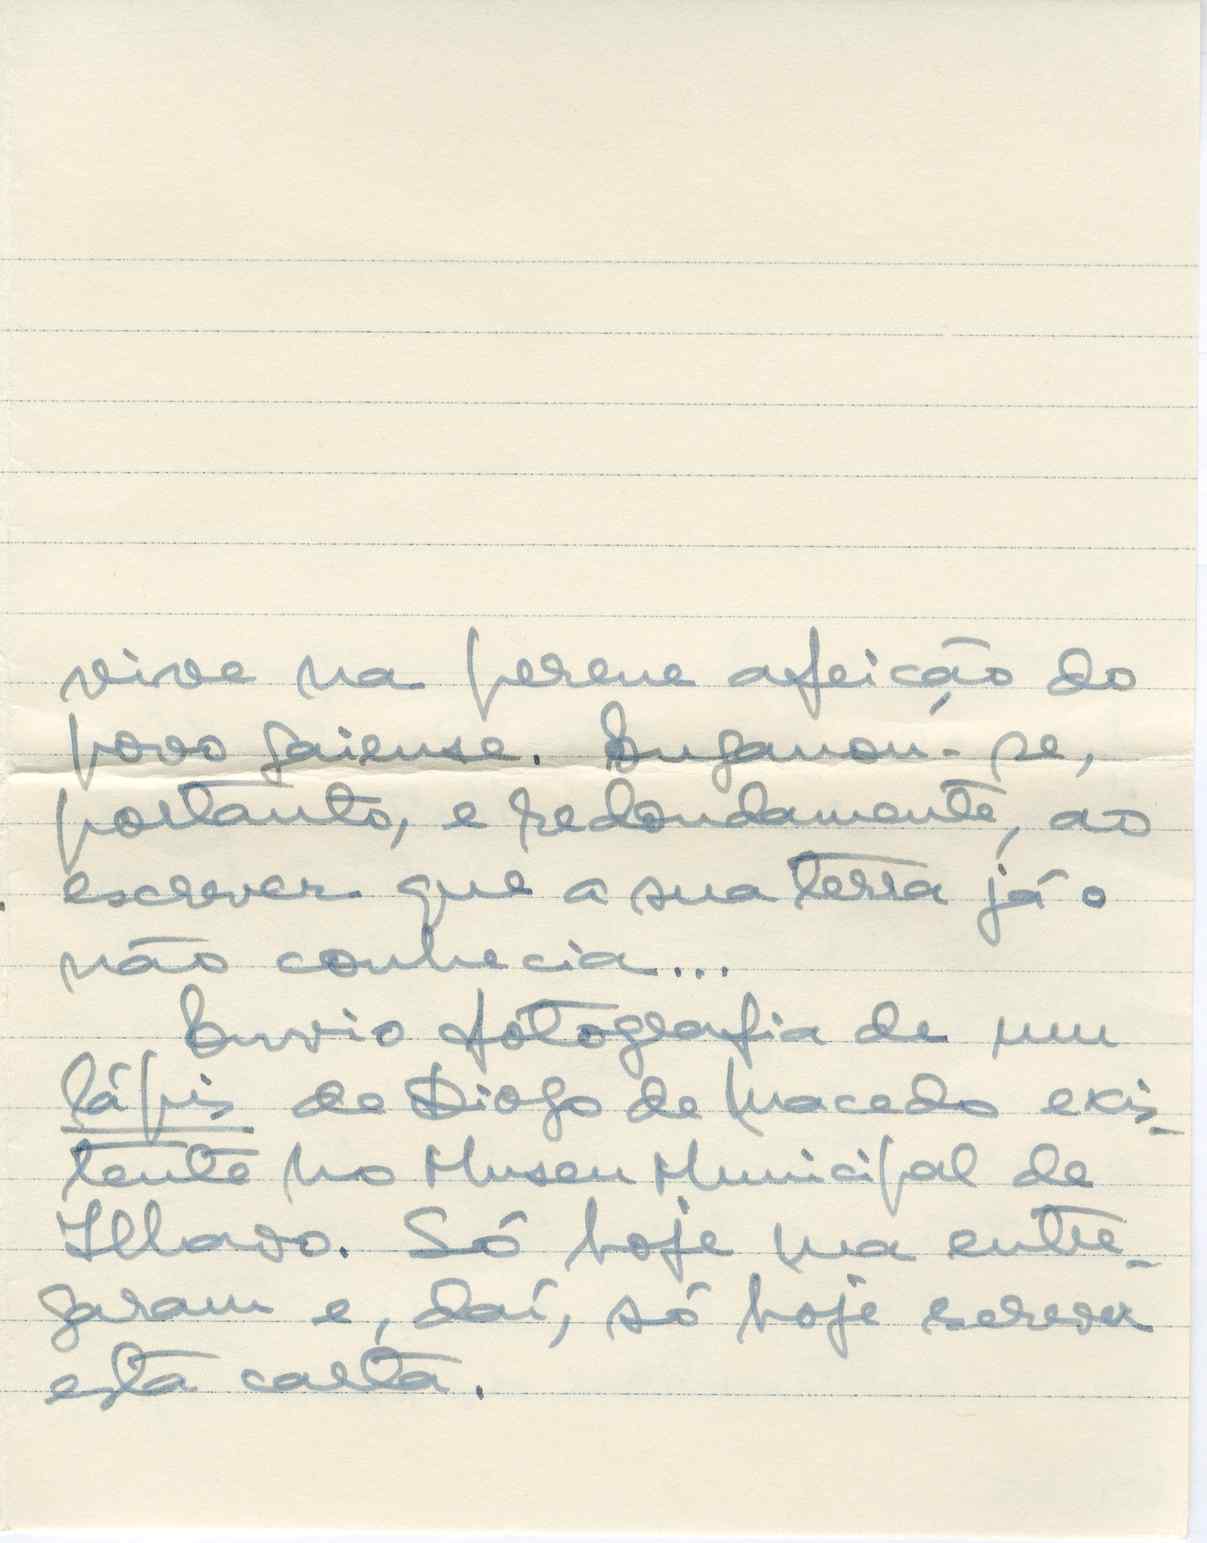 vive na perene afeição do
povo gaiense. Enganou-se,
portanto, e redondamente, ao
escrever que a sua terra já o
não conhecia...
Envio fotografia de um
lápis de Diogo de Macedo exis-
tente no Museu Municipal de
Ílhavo. Só hoje ma entre-
garam e, daí, só hoje escrever
esta carta.